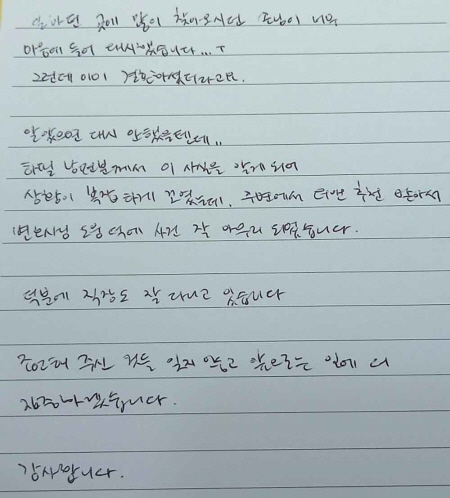 일하던 곳에 많이 찾아오시던 손님이 너무
마음에 들어 대시했습니다...ㅜ
그런데 이미 결혼하셨더라고요.
알았으면 대시 안했을텐데..
하필 남편분께서 이 사실을 알게되어
상황이 복잡하게 꼬였는데, 주변에서 더앤 추천 받아서
변호사님 도움 덕에 사건 잘 마무리 되었습니다.
덕분에 직장도 잘 다니고 있습니다
조언해 주신 것들 잊지 않고 앞으로는 일에 더
집중하겠습니다.
감사합니다.